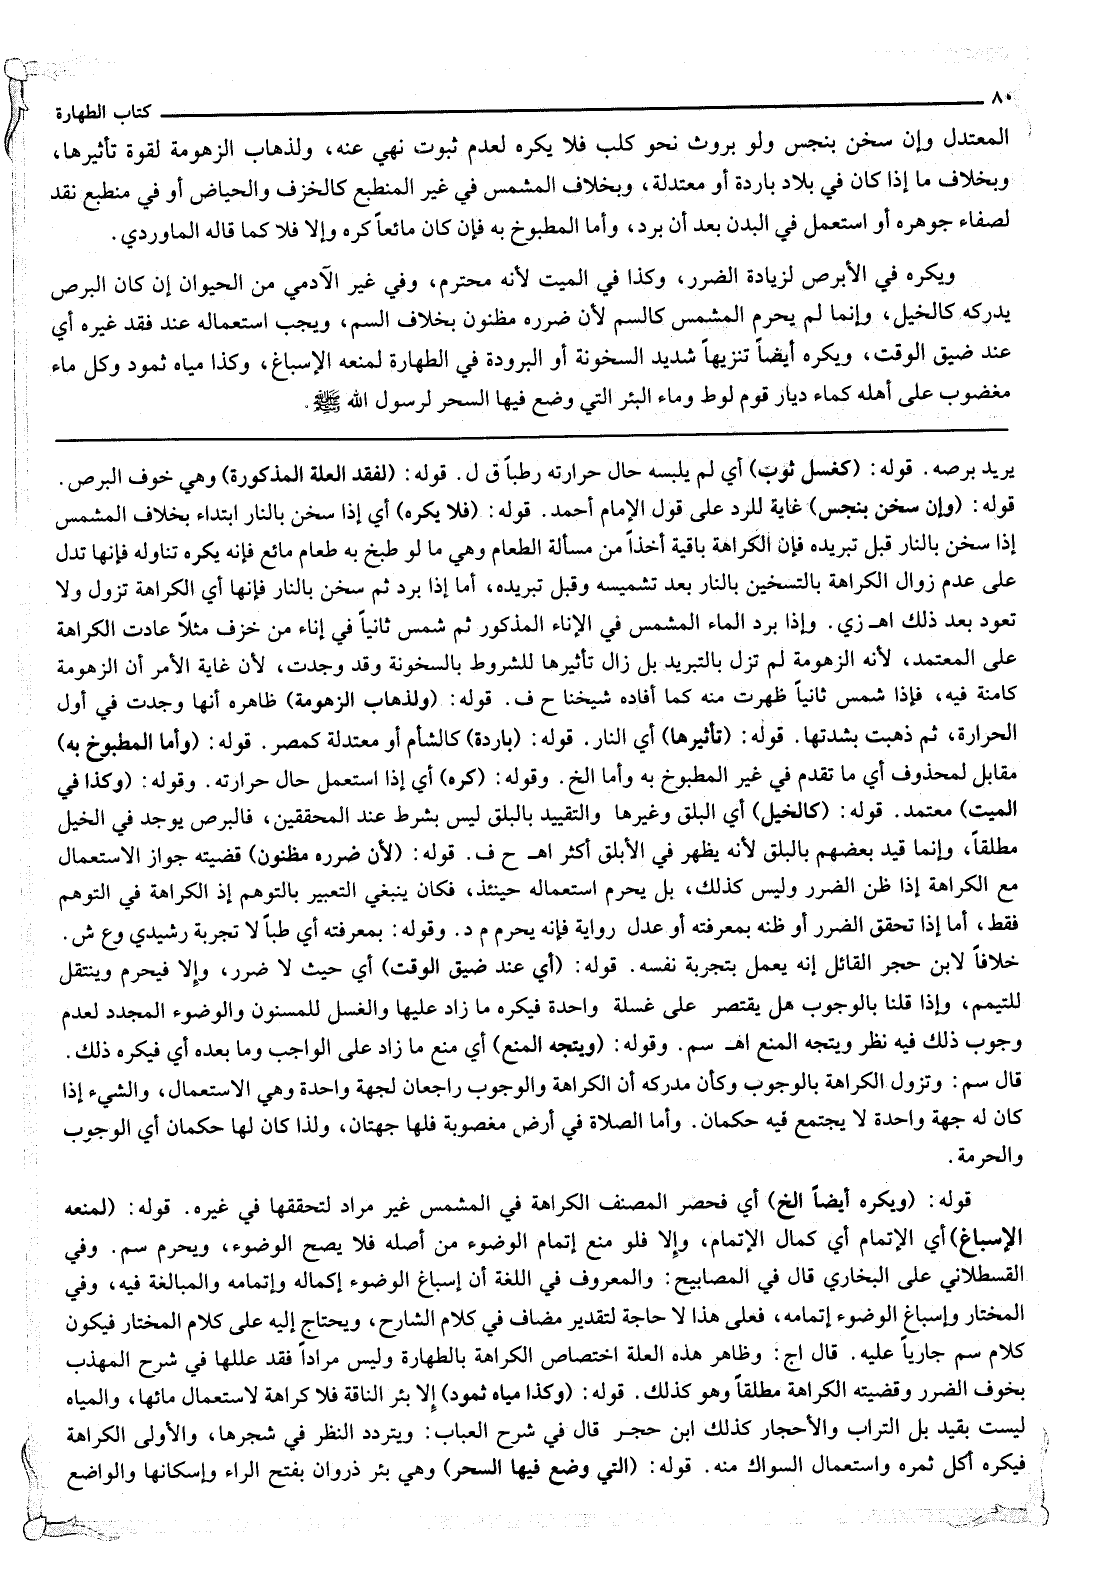 ٨٠ كتاب الطهارة
المعتدل وإن سخن بنجس ولو بروث نحو كلب فلا يكره لعدم ثبوت نهي عنه، ولذهاب الزهومة لقوة تأثيرها،
وبخلاف ما إذا كان في بلاد باردة أو معتدلة، وبخلاف المشمس في غير المنطبع كالخزف والحياض أو في منطبع نقد
لصفاء جوهره أو استعمل في البدن بعد أن برد، وأما المطبوخ به فإن كان مائعاً كره وإلا فلا كما قاله الماوردي.
ويكره في الأبرص لزيادة الضرر، وكذا في الميت لأنه محترم، وفي غير الآدمي من الحيوان إن كان البرص
يدركه كالخيل، وإنما لم يحرم المشمس كالسم لأن ضرره مظنون بخلاف السم، ويجب استعماله عند فقد غيره أي
عند ضيق الوقت، ويكره أيضاً تنزيهاً شديد السخونة أو البرودة في الطهارة لمنعه الإسباغ، وكذا مياه ثمود وكل ماء
مغضوب على أهله كماء ديار قوم لوط وماء البئر التي وضع فيها السحر لرسول الله ﷺ.
يريد برصه. قوله: (كغسل ثوب) أي لم يلبسه حال حرارته رطباً ق ل. قوله: (لفقد العلة المذكورة) وهي خوف البرص.
قوله: (وإن سخن بنجس) غاية للرد على قول الإمام أحمد. قوله: (فلا يكره) أي إذا سخن بالنار ابتداء بخلاف المشمس
إذا سخن بالنار قبل تبريده فإن الكراهة باقية أخذاً من مسألة الطعام وهي ما لو طبخ به طعام مائع فإنه يكره تناوله فإنها تدل
على عدم زوال الكراهة بالتسخين بالنار بعد تشميسه وقبل تبريده، أما إذا برد ثم سخن بالنار فإنها أي الكراهة تزول ولا
تعود بعد ذلك اهـ زي. وإذا برد الماء المشمس في الإناء المذكور ثم شمس ثانياً في إناء من خزف مثلاً عادت الكراهة
على المعتمد، لأنه الزهومة لم تزل بالتبريد بل زال تأثيرها للشروط بالسخونة وقد وجدت، لأن غاية الأمر أن الزهومة
كامنة فيه، فإذا شمس ثانياً ظهرت منه كما أفاده شيخنا ح ف. قوله: (ولذهاب الزهومة) ظاهره أنها وجدت في أول
الحرارة، ثم ذهبت بشدتها. قوله: (تأثيرها) أي النار. قوله: (باردة) كالشأم أو معتدلة كمصر. قوله: (وأما المطبوخ به)
مقابل لمحذوف أي ما تقدم في غير المطبوخ به وأما الخ. وقوله: (كره) أي إذا استعمل حال حرارته. وقوله: (وكذا في
الميت) معتمد. قوله: (كالخيل) أي البلق وغيرها والتقييد بالبلق ليس بشرط عند المحققين، فالبرص يوجد في الخيل
مطلقاً، وإنما قيد بعضهم بالبلق لأنه يظهر في الأبلق أكثر اهـ ح ف. قوله: (لأن ضرره مظنون) قضيته جواز الاستعمال
مع الكراهة إذا ظن الضرر وليس كذلك، بل يحرم استعماله حينئذ، فكان ينبغي التعبير بالتوهم إذ الكراهة في التوهم
فقط، أما إذا تحقق الضرر أو ظنه بمعرفته أو عدل رواية فإنه يحرم م د. وقوله: بمعرفته أي طباً لا تجربة رشيدي وع ش.
خلافاً لابن حجر القائل إنه يعمل بتجربة نفسه. قوله: (أي عند ضيق الوقت) أي حيث لا ضرر، وإلا فيحرم وينتقل
للتيمم، وإذا قلنا بالوجوب هل يقتصر على غسلة واحدة فيكره ما زاد عليها والغسل للمسنون والوضوء المجدد لعدم
وجوب ذلك فيه نظر ويتجه المنع اهـ سم. وقوله: (ويتجه المنع) أي منع ما زاد على الواجب وما بعده أي فيكره ذلك.
قال سم: وتزول الكراهة بالوجوب وكأن مدركه أن الكراهة والوجوب راجعان لجهة واحدة وهي الاستعمال، والشيء إذا
كان له جهة واحدة لا يجتمع فيه حكمان. وأما الصلاة في أرض مغصوبة فلها جهتان، ولذا كان لها حكمان أي الوجوب
والحرمة.
قوله: (ويكره أيضاً الخ) أي فحصر المصنف الكراهة في المشمس غير مراد لتحققها في غيره. قوله: (لمنعه
الإسباغ) أي الإتمام أي كمال الإتمام، وإلا فلو منع إتمام الوضوء من أصله فلا يصح الوضوء، ويحرم سم. وفي
القسطلاني على البخاري قال في المصابيح: والمعروف في اللغة أن إسباغ الوضوء إكماله وإتمامه والمبالغة فيه، وفي
المختار وإسباغ الوضوء إتمامه، فعلى هذا لا حاجة لتقدير مضاف في كلام الشارح، ويحتاج إليه على كلام المختار فيكون
كلام سم جارياً عليه. قال اج: وظاهر هذه العلة اختصاص الكراهة بالطهارة وليس مراداً فقد عللها في شرح المهذب
بخوف الضرر وقضيته الكراهة مطلقاً وهو كذلك. قوله: (وكذا مياه ثمود) إلا بئر الناقة فلا كراهة لاستعمال مائها، والمياه
ليست بقيد بل التراب والأحجار كذلك ابن حجر قال في شرح العباب: ويتردد النظر في شجرها، والأولى الكراهة
فيكره أكل ثمره واستعمال السواك منه. قوله: (التي وضع فيها السحر) وهي بئر ذروان بفتح الراء وإسكانها والواضع